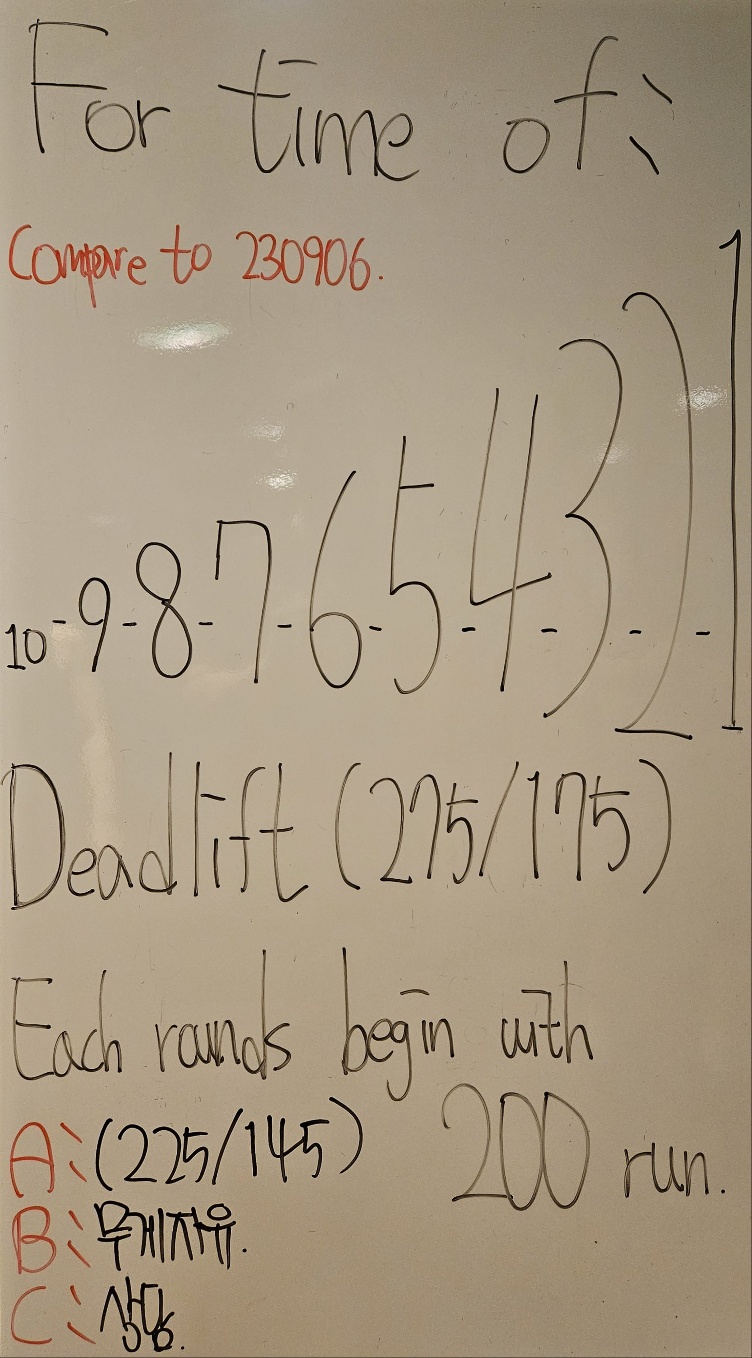 For time of:
Compare to 230906.
10-9-8-7-6-5-4-3-2-1
Deadlift (275/175)
Each rounds begin with
200 run.
A: (225/145)
B: 무게자유.
C: 상담.